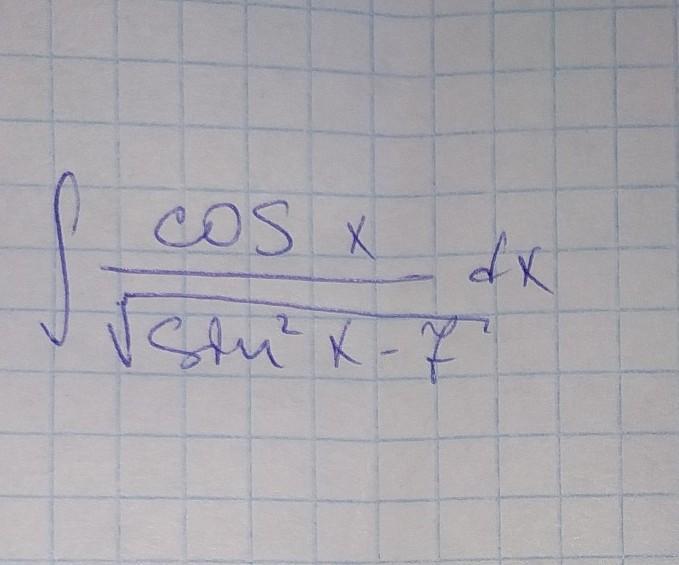 ∫ cos x / √(sin² x - 7) dx